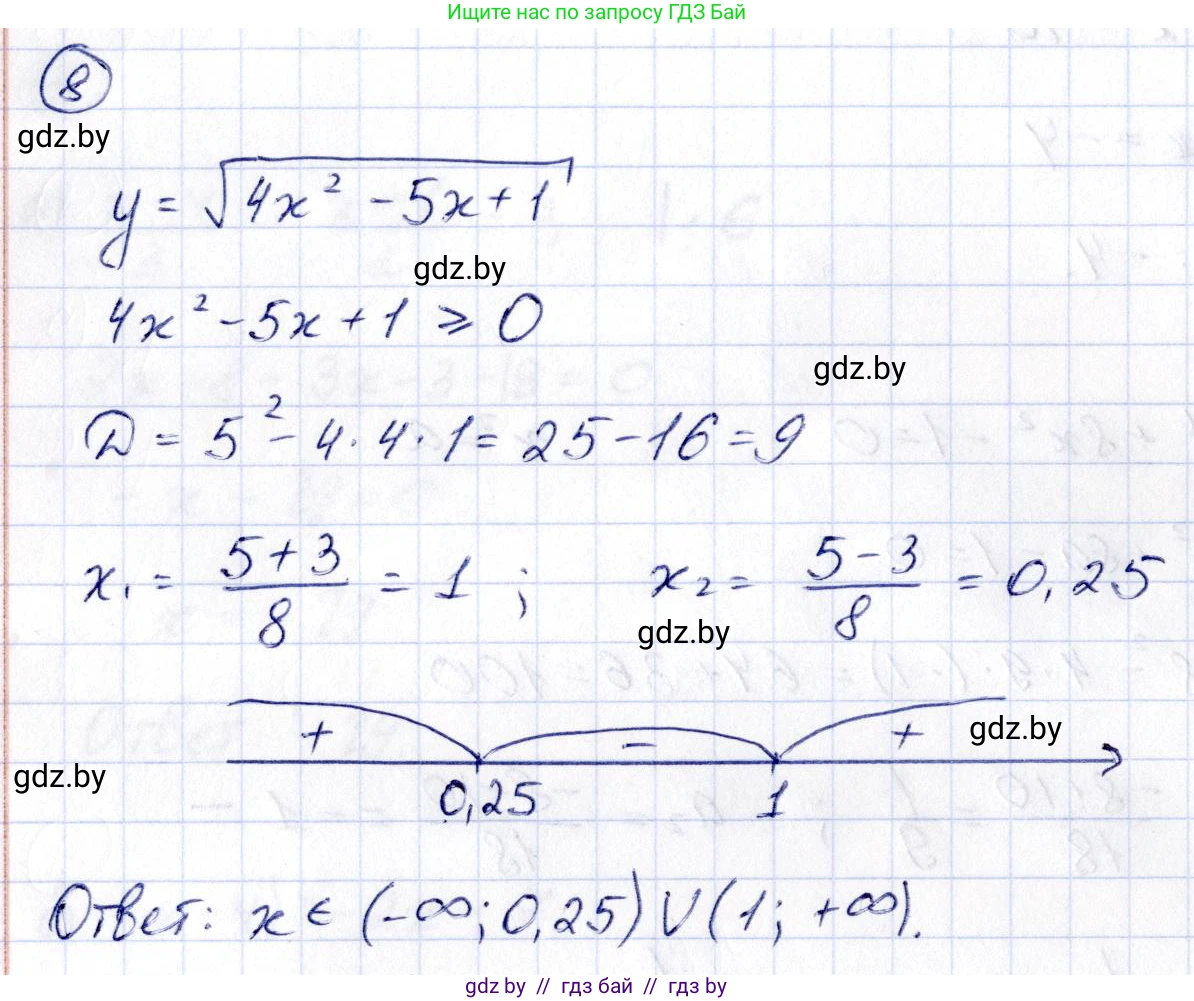 Ищите нас по запросу ГДЗ Бай
8
gdz.by
y = √(4x² - 5x + 1)
gdz.by
4x² - 5x + 1 ⩾ 0
gdz.by
D = 5² - 4 · 4 · 1 = 25 - 16 = 9
x₁ = (5 + 3)/8 = 1 ; x₂ = (5 - 3)/8 = 0,25
gdz.by
+ - + gdz.by
gdz.by
0,25 1
Ответ: x ∈ (-∞; 0,25) ∪ (1; +∞).
gdz.by // гдз бай // gdz.by